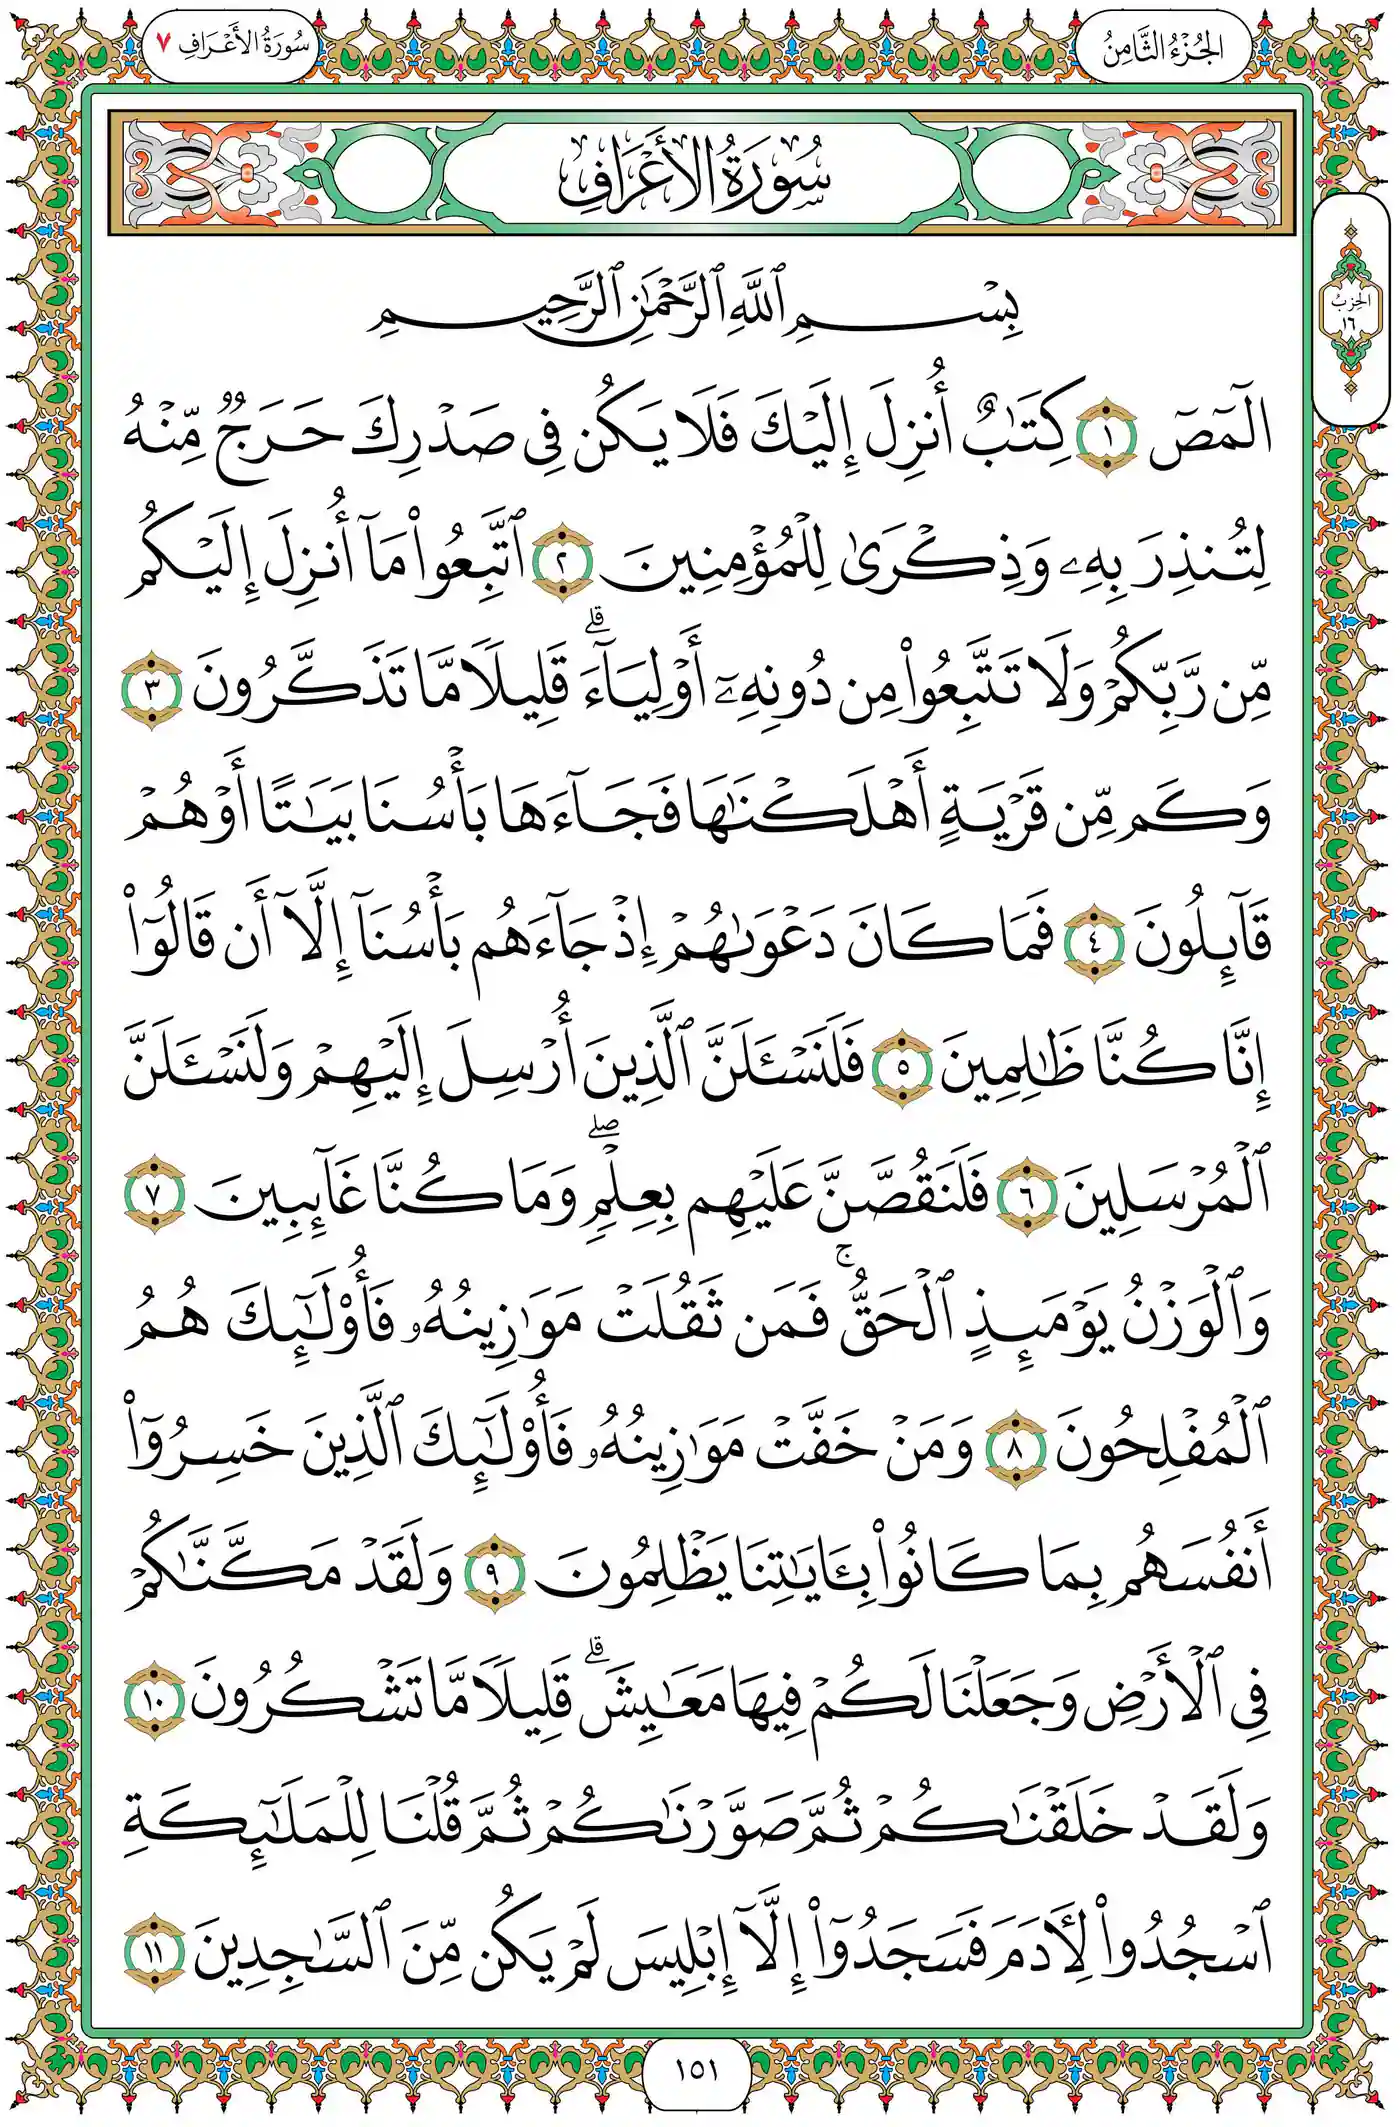 الجُزْءُ الثَّامِنُ
سُورَةُ الأَعْرَافِ ٧
سُورَةُ الأَعْرَافِ
الحِزْبُ
١٦
بِسْمِ ٱللَّهِ ٱلرَّحْمَٰنِ ٱلرَّحِيمِ
الٓمٓصٓ ١ كِتَٰبٌ أُنزِلَ إِلَيْكَ فَلَا يَكُن فِى صَدْرِكَ حَرَجٌ مِّنْهُ
لِتُنذِرَ بِهِۦ وَذِكْرَىٰ لِلْمُؤْمِنِينَ ٢ ٱتَّبِعُوا۟ مَآ أُنزِلَ إِلَيْكُم
مِّن رَّبِّكُمْ وَلَا تَتَّبِعُوا۟ مِن دُونِهِۦٓ أَوْلِيَآءَ ۗ قَلِيلًا مَّا تَذَكَّرُونَ ٣
وَكَم مِّن قَرْيَةٍ أَهْلَكْنَٰهَا فَجَآءَهَا بَأْسُنَا بَيَٰتًا أَوْ هُمْ
قَآئِلُونَ ٤ فَمَا كَانَ دَعْوَىٰهُمْ إِذْ جَآءَهُم بَأْسُنَآ إِلَّآ أَن قَالُوٓا۟
إِنَّا كُنَّا ظَٰلِمِينَ ٥ فَلَنَسْـَٔلَنَّ ٱلَّذِينَ أُرْسِلَ إِلَيْهِمْ وَلَنَسْـَٔلَنَّ
ٱلْمُرْسَلِينَ ٦ فَلَنَقُصَّنَّ عَلَيْهِم بِعِلْمٍ ۖ وَمَا كُنَّا غَآئِبِينَ ٧
وَٱلْوَزْنُ يَوْمَئِذٍ ٱلْحَقُّ ۚ فَمَن ثَقُلَتْ مَوَٰزِينُهُۥ فَأُو۟لَٰٓئِكَ هُمُ
ٱلْمُفْلِحُونَ ٨ وَمَنْ خَفَّتْ مَوَٰزِينُهُۥ فَأُو۟لَٰٓئِكَ ٱلَّذِينَ خَسِرُوٓا۟
أَنفُسَهُم بِمَا كَانُوا۟ بِـَٔايَٰتِنَا يَظْلِمُونَ ٩ وَلَقَدْ مَكَّنَّٰكُمْ
فِى ٱلْأَرْضِ وَجَعَلْنَا لَكُمْ فِيهَا مَعَٰيِشَ ۗ قَلِيلًا مَّا تَشْكُرُونَ ١٠
وَلَقَدْ خَلَقْنَٰكُمْ ثُمَّ صَوَّرْنَٰكُمْ ثُمَّ قُلْنَا لِلْمَلَٰٓئِكَةِ
ٱسْجُدُوا۟ لِـَٔادَمَ فَسَجَدُوٓا۟ إِلَّآ إِبْلِيسَ لَمْ يَكُن مِّنَ ٱلسَّٰجِدِينَ ١١
١٥١